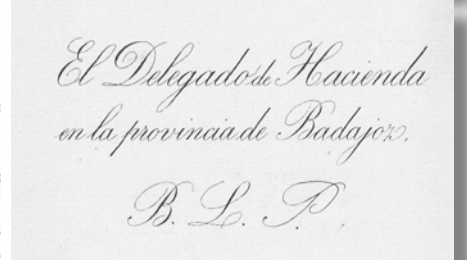 El Delegado de Hacienda
en la provincia de Badajoz.
B. L. P.